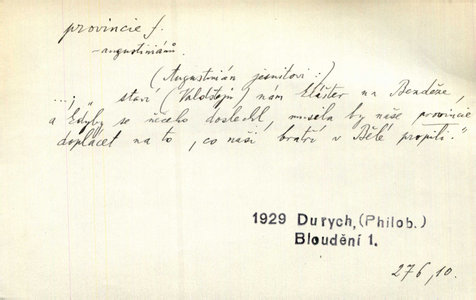 provincie f.
-augustiniánů.
(Augustinián jesuitovi:)
...; „ staví (Valdštejn) nám klášter na Bendéze,
a kdyby se něčeho doslechl, musila by naše provincie
doplácet na to, co naši bratří v Bělé propili."
1929 Durych, (Philob.)
Bloudění 1.
276,10.